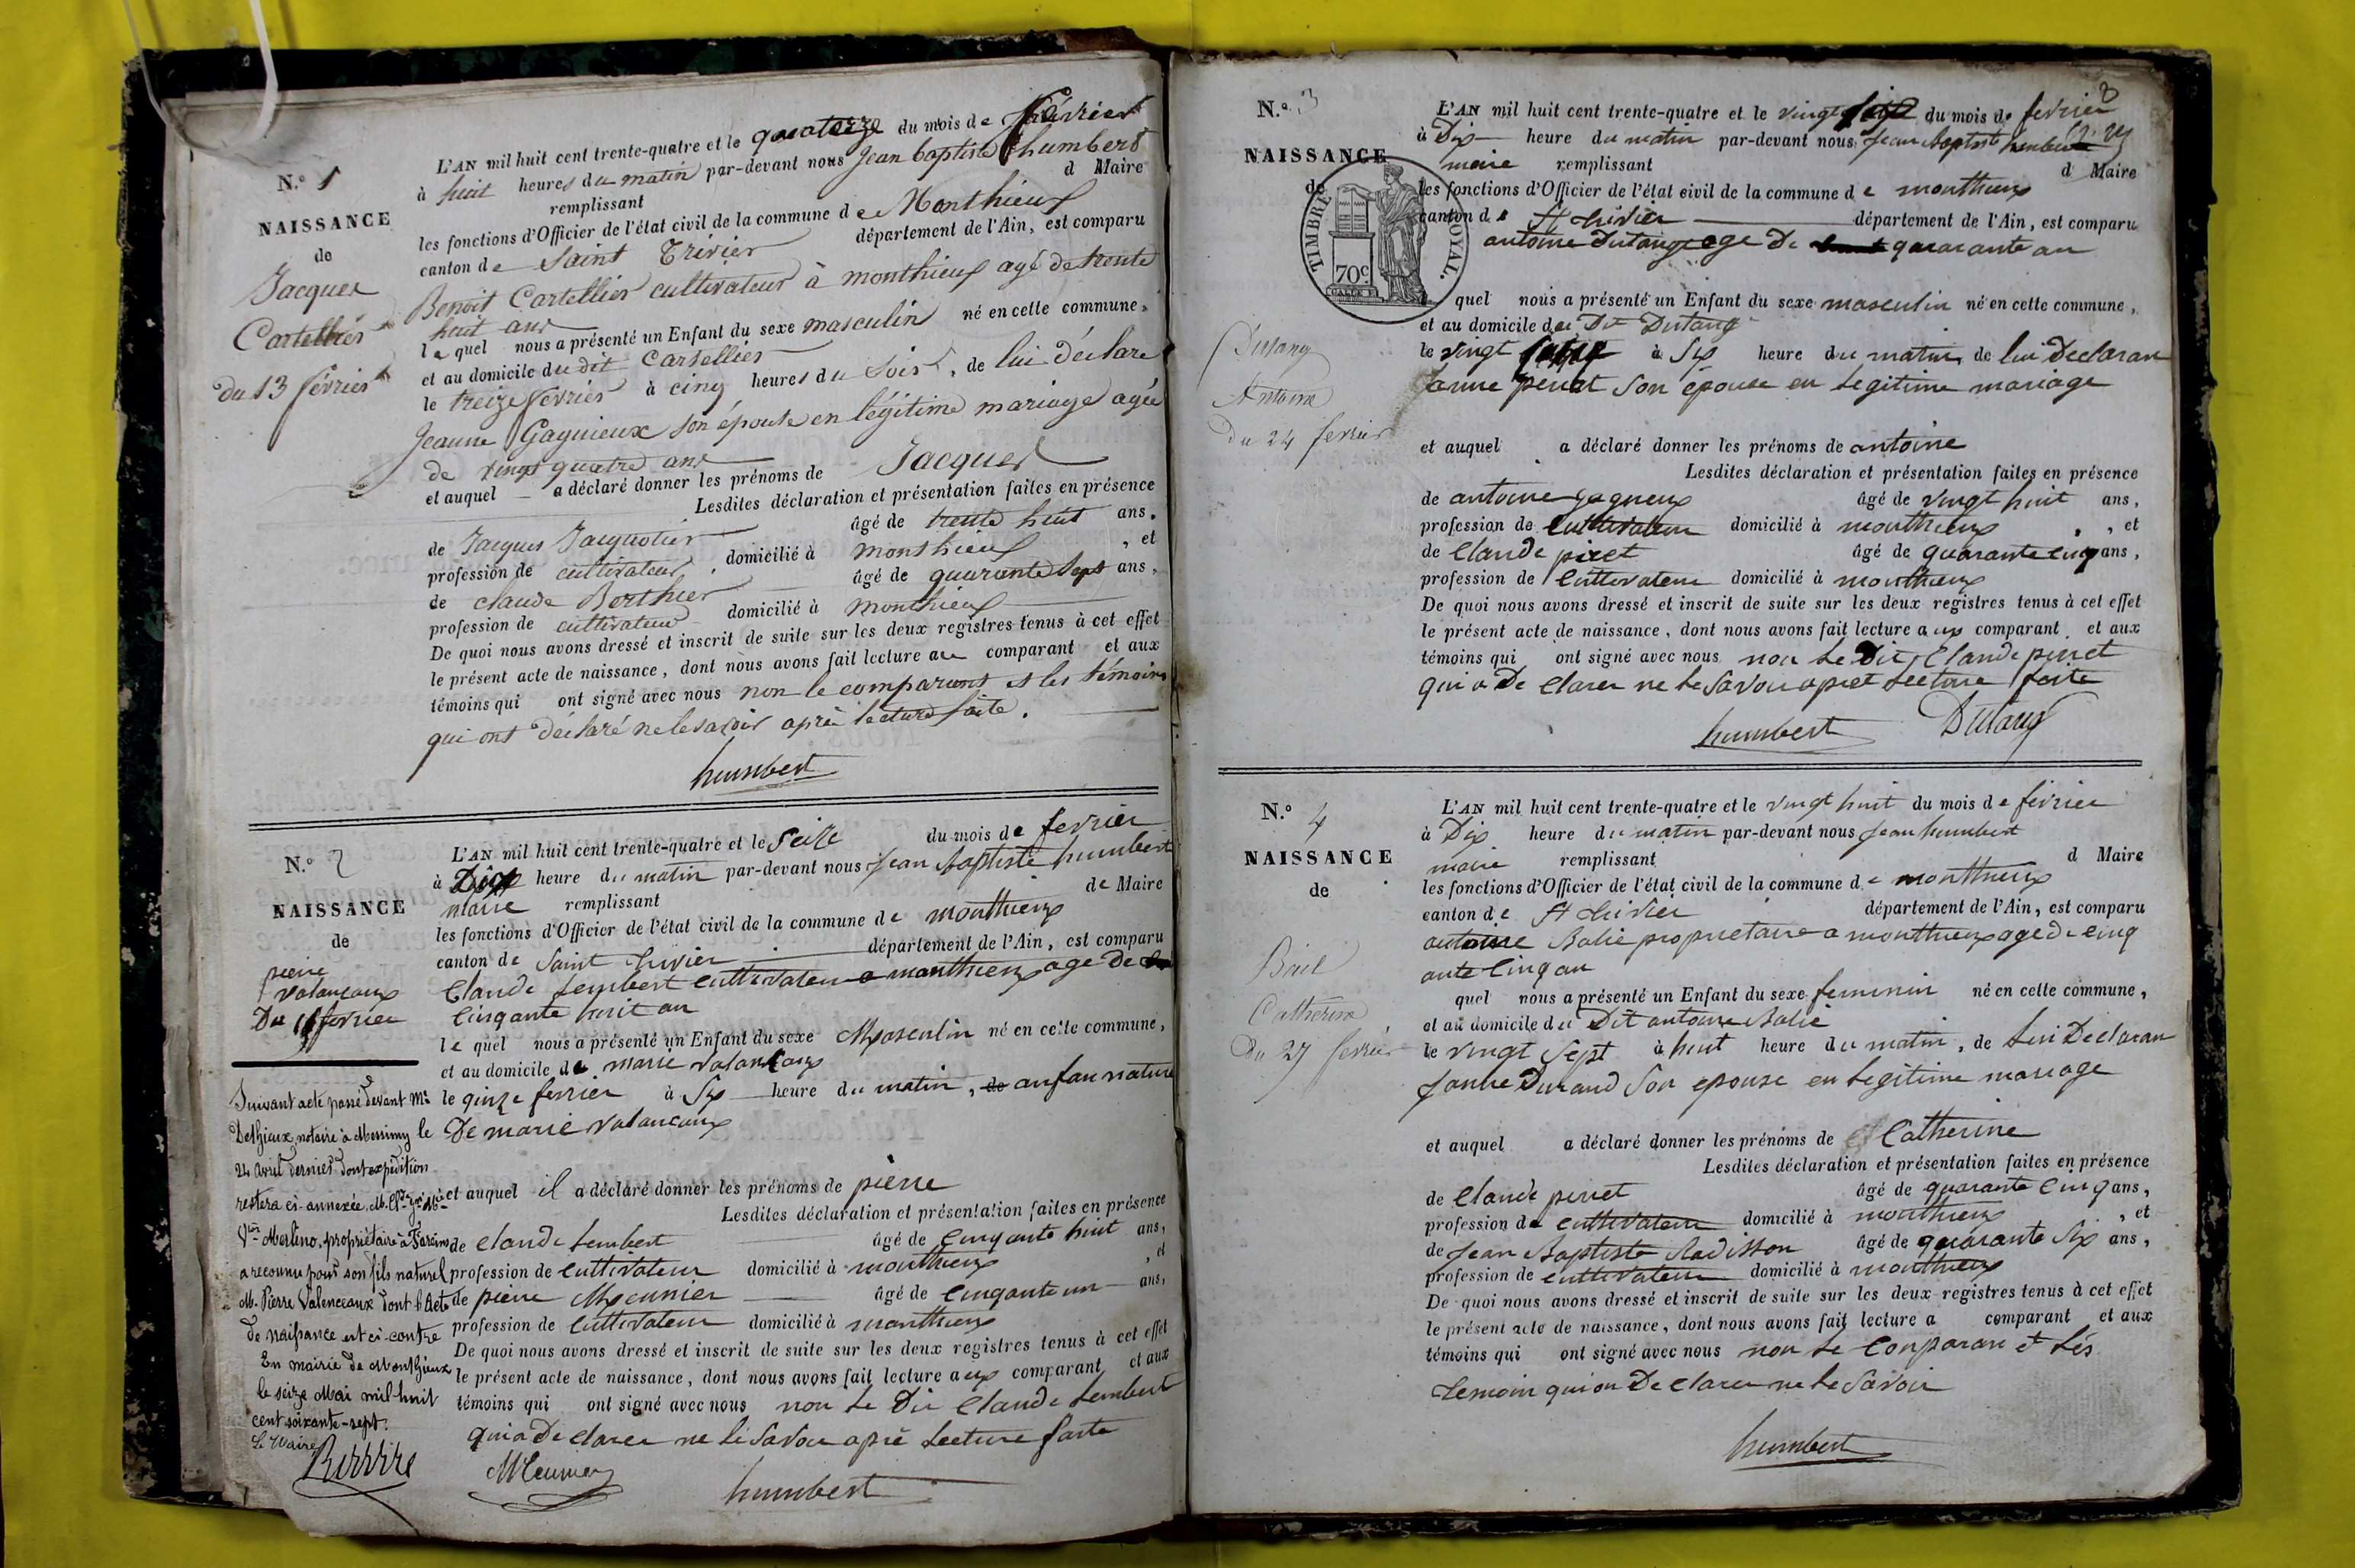 N.° 1
NAISSANCE
de
Jacques
Cartellier
du 13 février
L'AN mil huit cent trente-quatre et le quatorze du mois de février
à huit heures du matin par-devant nous Jean baptiste humbert
remplissant d Maire
les fonctions d'Officier de l'état civil de la commune de Monthieux
canton de Saint Trivier département de l'Ain, est comparu
Benoit Cartellier cultivateur à monthieux agé de trente
huit ans
le quel nous a présenté un Enfant du sexe masculin né en cette commune,
et au domicile du dit Cartellier
le treize février à cinq heures du soir, de lui déclare
Jeanne Gagnieux son épouse en légitime mariage agée
de vingt quatre ans
et auquel a déclaré donner les prénoms de Jacques
Lesdites déclaration et présentation faites en présence
de Jacques Jacquotier âgé de trente huit ans,
profession de cultivateur, domicilié à monthieux, et
de claude Berthier âgé de quarante sept ans,
profession de cultivateur domicilié à monthieux
De quoi nous avons dressé et inscrit de suite sur les deux registres tenus à cet effet
le présent acte de naissance, dont nous avons fait lecture au comparant et aux
témoins qui ont signé avec nous non le comparant et les témoins
qui ont déclaré ne le savoir après lecture faite.
humbert
N.° 2
NAISSANCE
de
pierre
valancaux
Du février
L'AN mil huit cent trente-quatre et le Seize du mois de fevrier
à Dix heure du matin par-devant nous jean baptiste humbert
maire remplissant de Maire
les fonctions d'Officier de l'état civil de la commune de monthieux
canton de Saint trivier département de l'Ain, est comparu
Claude Lembert cultivateur a monthieux age de
Cinqante huit an
le quel nous a présenté un Enfant du sexe Masculin né en cette commune,
et au domicile de marie valancaux
le qinze fevrier à Six heure du matin, de anfan nature
De marie valancaux
et auquel il a déclaré donner les prénoms de pierre
Lesdites déclaration et présentation faites en présence
de claude Lembert âgé de Cinqante huit ans,
profession de Cultivateur domicilié à monthieux, et
de pierre Meunier âgé de Cinqante un ans,
profession de Cultivateur domicilié à monthieux
De quoi nous avons dressé et inscrit de suite sur les deux registres tenus à cet effet
le présent acte de naissance, dont nous avons fait lecture aux comparant et aux
témoins qui ont signé avec nous non le Dit Claude Lembert
qui a De clarer ne le Savoir aprè Lecture faite
Meunier humbert
Suivant acte passé devant Me
Dethiaux, notaire à Messimy le
24 avril dernier dont expédition
restera ci-annexée, M.
Merlino, propriétaire à Fareins
a reconnu pour son fils naturel
M. Pierre Valenceaux dont l'Acte
de naissance est ci-contre
En mairie de Monthieux
le seize Mai mil huit
cent soixante-sept.
Le Maire
N.° 3
NAISSANCE
de
Dutang
Antoine
Du 24 fevrier
TIMBRE ROYAL.
70c
3
L'AN mil huit cent trente-quatre et le vingt du mois de fevrier
à Dix heure du matin par-devant nous jean baptiste humbert
maire remplissant d Maire
les fonctions d'Officier de l'état civil de la commune de monthieux
canton de St trivier département de l'Ain, est comparu
antoine Dutang age De quarante an
quel nous a présenté un Enfant du sexe masculin né en cette commune,
et au domicile du Dit Dutang
le vingt à Six heure du matin de lui Declaran
janne perret Son épouse en Legitime mariage
et auquel a déclaré donner les prénoms de antoine
Lesdites déclaration et présentation faites en présence
de antoine gagneux âgé de vingt huit ans,
profession de Cultivateur domicilié à monthieux, et
de Claude piret âgé de quarante cinq ans,
profession de Cultivateur domicilié à monthieux
De quoi nous avons dressé et inscrit de suite sur les deux registres tenus à cet effet
le présent acte de naissance, dont nous avons fait lecture aux comparant et aux
témoins qui ont signé avec nous non Le Dit Claude perret
qui a De clarer ne Le Savoir apret Lecture faite
humbert Dutang
N.° 4
NAISSANCE
de
Bail
Catherine
Du 27 fevrier
L'AN mil huit cent trente-quatre et le vingt huit du mois de fevrier
à Dix heure du matin par-devant nous jean humbert
maire remplissant d Maire
les fonctions d'Officier de l'état civil de la commune de monthieux
canton de St trivier département de l'Ain, est comparu
antoine Balie proprietaire a monthieux age de cinq
ante Cinq an
quel nous a présenté un Enfant du sexe feminin né en cette commune,
et au domicile du Dit antoine Balie
le vingt Sept à huit heure du matin, de Lui Declaran
janne Durand Son epouse en Legitime mariage
et auquel a déclaré donner les prénoms de Catherine
Lesdites déclaration et présentation faites en présence
de Claude perret âgé de quarante Cinq ans,
profession de cultivateur domicilié à monthieux, et
de jean Baptiste Radisson âgé de quarante Six ans,
profession de cultivateur domicilié à monthieux
De quoi nous avons dressé et inscrit de suite sur les deux registres tenus à cet effet
le présent acte de naissance, dont nous avons fait lecture a comparant et aux
témoins qui ont signé avec nous non Le Conparan et Lés
temoin qui on De clarer ne Le Savoir
humbert